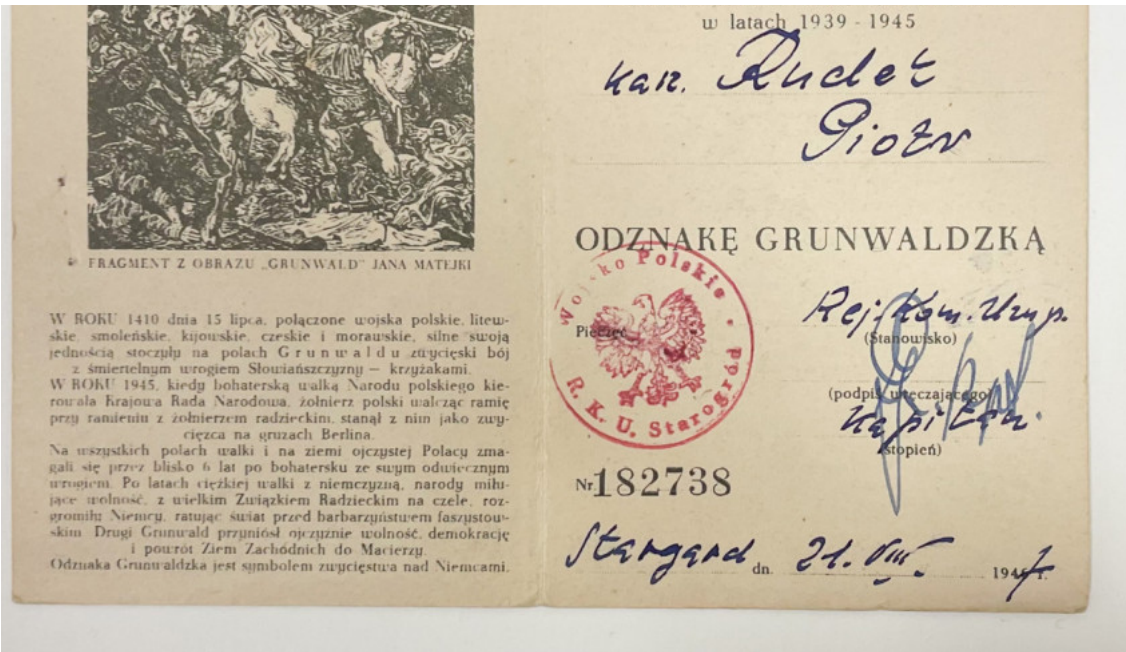 FRAGMENT Z OBRAZU „GRUNWALD" JANA MATEJKI
W ROKU 1410 dnia 15 lipca, połączone wojska polskie, litew-
skie, smoleńskie, kijowskie, czeskie i morawskie, silne swoją
jednością stoczyły na polach Grunwaldu zwycięski bój
z śmiertelnym wrogiem Słowiańszczyzny — krzyżakami.
W ROKU 1945, kiedy bohaterską walką Narodu polskiego kie-
rowała Krajowa Rada Narodowa, żołnierz polski walcząc ramię
przy ramieniu z żołnierzem radzieckim, stanął z nim jako zwy-
cięzca na gruzach Berlina.
Na wszystkich polach walki i na ziemi ojczystej Polacy zma-
gali się przez blisko 6 lat po bohatersku ze swym odwiecznym
wrogiem. Po latach ciężkiej walki z niemczyzną, narody miłu-
jące wolność, z wielkim Związkiem Radzieckim na czele, roz-
gromiły Niemcy, ratując świat przed barbarzyństwem faszystow-
skim. Drugi Grunwald przyniósł ojczyznie wolność, demokrację
i powrót Ziem Zachodnich do Macierzy.
Odznaka Grunwaldzka jest symbolem zwycięstwa nad Niemcami.
w latach 1939 - 1945
kan. Rudek
Piotr
ODZNAKĘ GRUNWALDZKĄ
Wojsko Polskie
R. K. U. Starogród
Pieczęć
Rej. Kom. Uzup.
(Stanowisko)
(podpis wręczającego)
Kapitan.
(stopień)
Nr 182738
Stargard dn. 21. VIII. 1947 r.